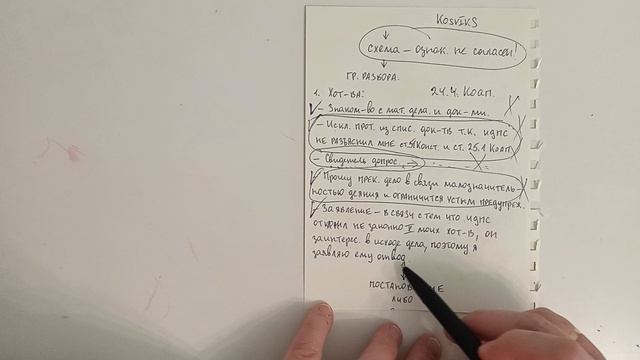 KosvikS
схема – ознак. не согласен!
гр. разбора.
1. Хот-ва: 24.4. КоАП.
– Знаком-во с мат. дела. и док-ми.
– Искл. прот. из спис. док-тв т.к. ИДПС
не разъяснил мне ст. 51 Конст. и ст. 25.1 КоАП
– Свидетель допрос. →
– Прошу прек. дело в связи малозначитель-
ностью деяния и ограничится устым предупреж.
– Заявление – в связи с тем что ИДПС
отклонил не законно II моих хот-в, он
заинтерес. в исходе дела, поэтому я
заявляю ему отвод.
либо